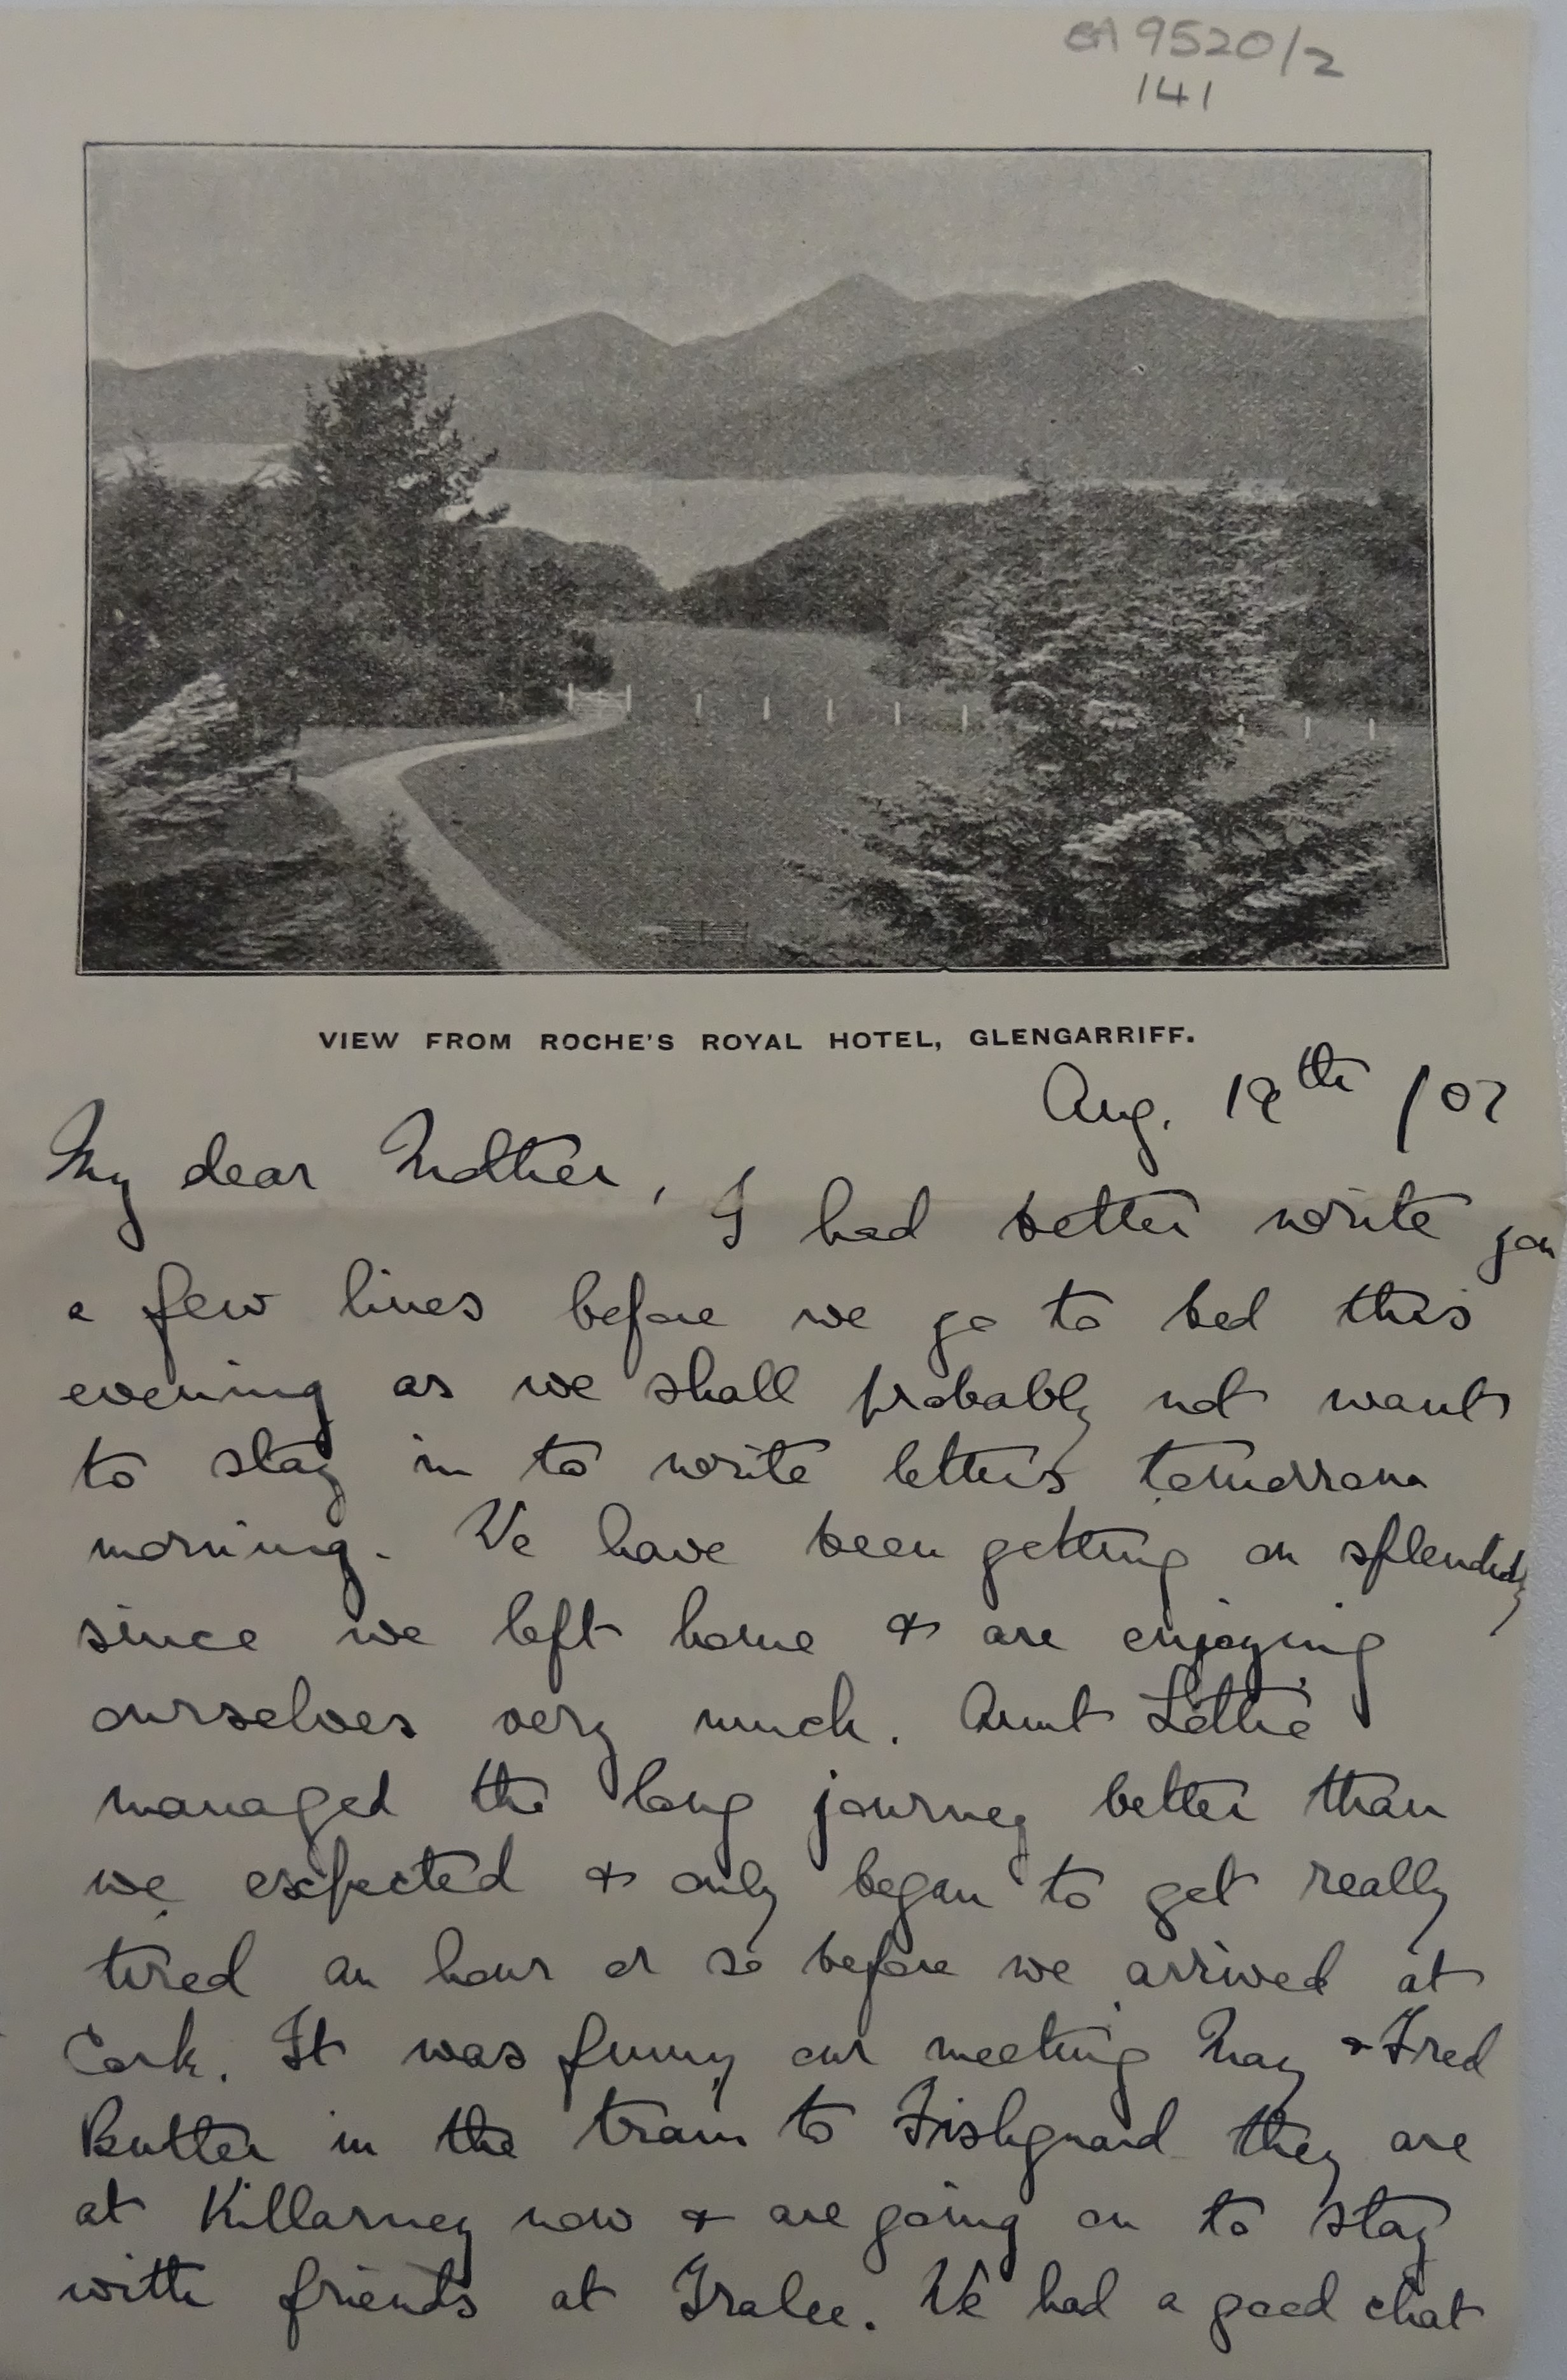 EA 9520/2
141
VIEW FROM ROCHE'S ROYAL HOTEL, GLENGARRIFF.
Aug. 19th /07
My dear Mother,
I had better write you
a few lines before we go to bed this
evening as we shall probably not want
to stay in to write letters tomorrow
morning. We have been getting on splendidly
since we left home & are enjoying
ourselves very much. Aunt Lottie
managed the long journey better than
we expected & only began to get really
tired an hour or so before we arrived at
Cork. It was funny our meeting May & Fred
Butter in the train to Fishguard they are
at Killarney now & are going on to stay
with friends at Tralee. We had a good chat